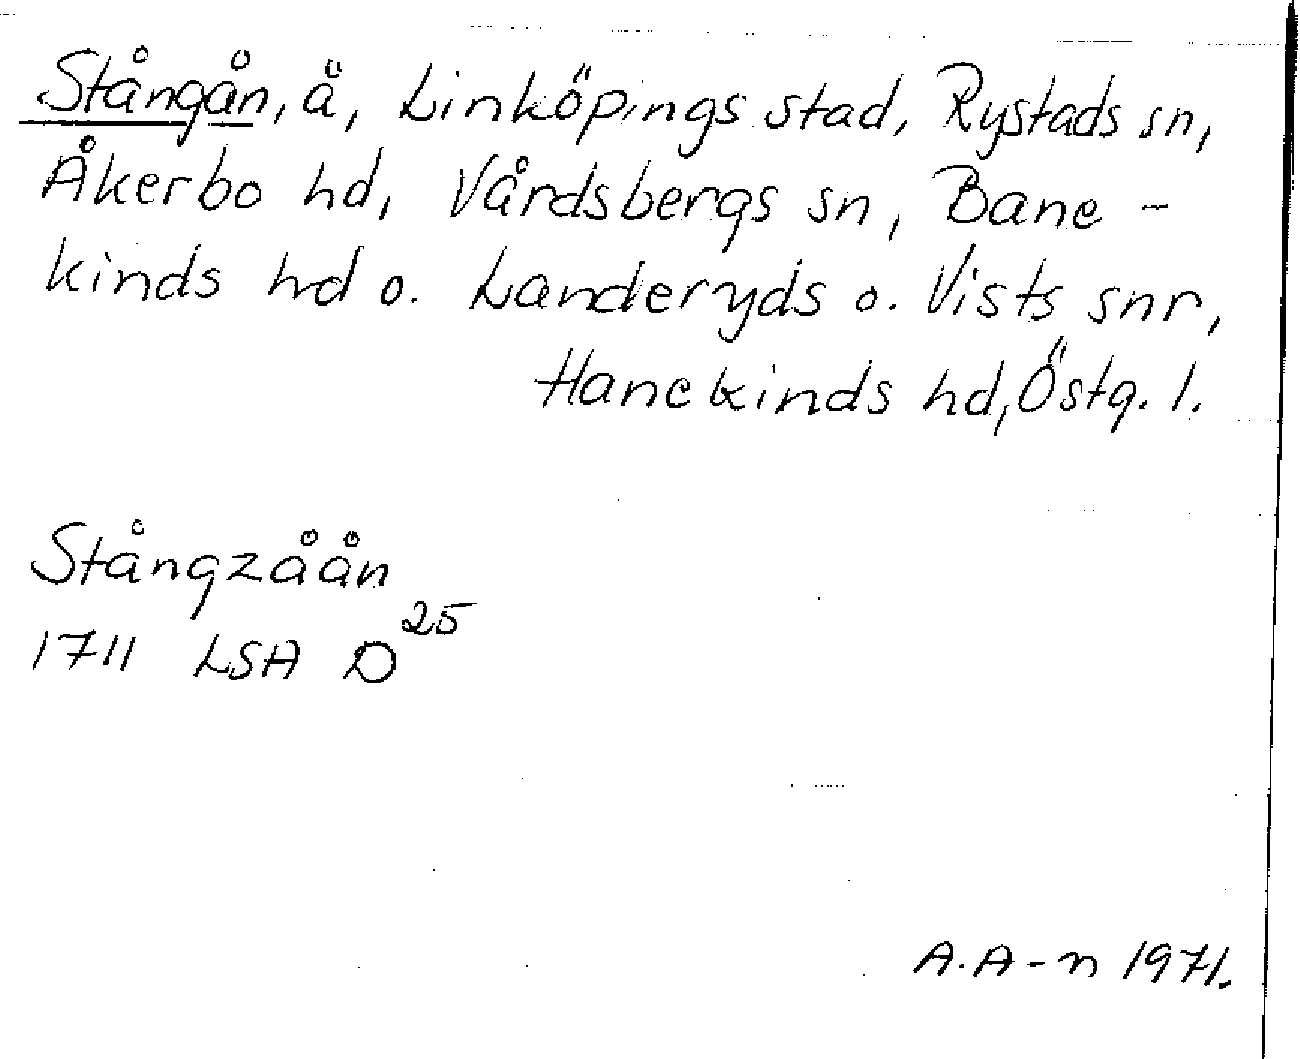 Stångån, å, Linköpings stad, Rystads sn,
Åkerbo hd, Vårdsbergs sn, Bane-
kinds hd o. Landeryds o. Vists snr,
Hanekinds hd, Östg. l.
Stångzåån
1711 LSA D25
A.A-n 1971.